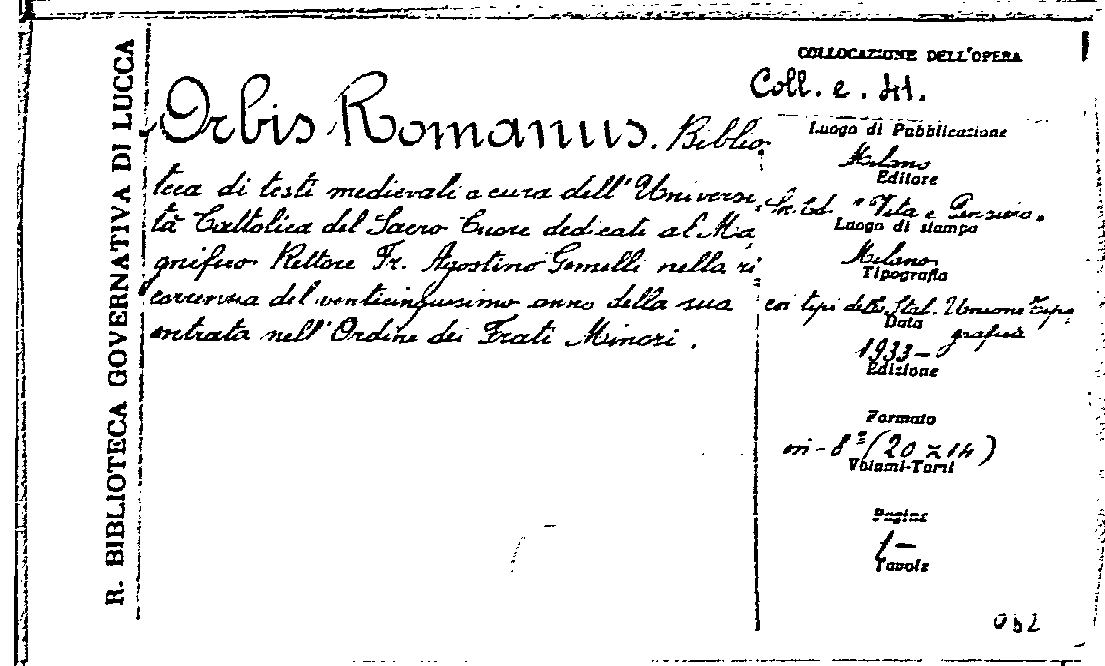 R. BIBLIOTECA GOVERNATIVA DI LUCCA
Orbis Romanus. Biblio
teca di testi medievali a cura dell'Universi
tà Cattolica del Sacro Cuore dedicati al Ma
gnifico Rettore Fr. Agostino Gemelli nella ri
correnza del venticinquesimo anno della sua
entrata nell'Ordine dei Frati Minori.
COLLOCAZIONE DELL'OPERA
Coll. e. 41.
Luogo di Pubblicazione
Milano
Editore
Soc. Ed. "Vita e Pensiero"
Luogo di stampa
Milano
Tipografia
coi tipi dello Stab. Unione Tipo-
Data
grafica
1933-
Edizione
Formato
in-8° (20 x 14)
Volumi-Tomi
Pagine
1-
Tavole